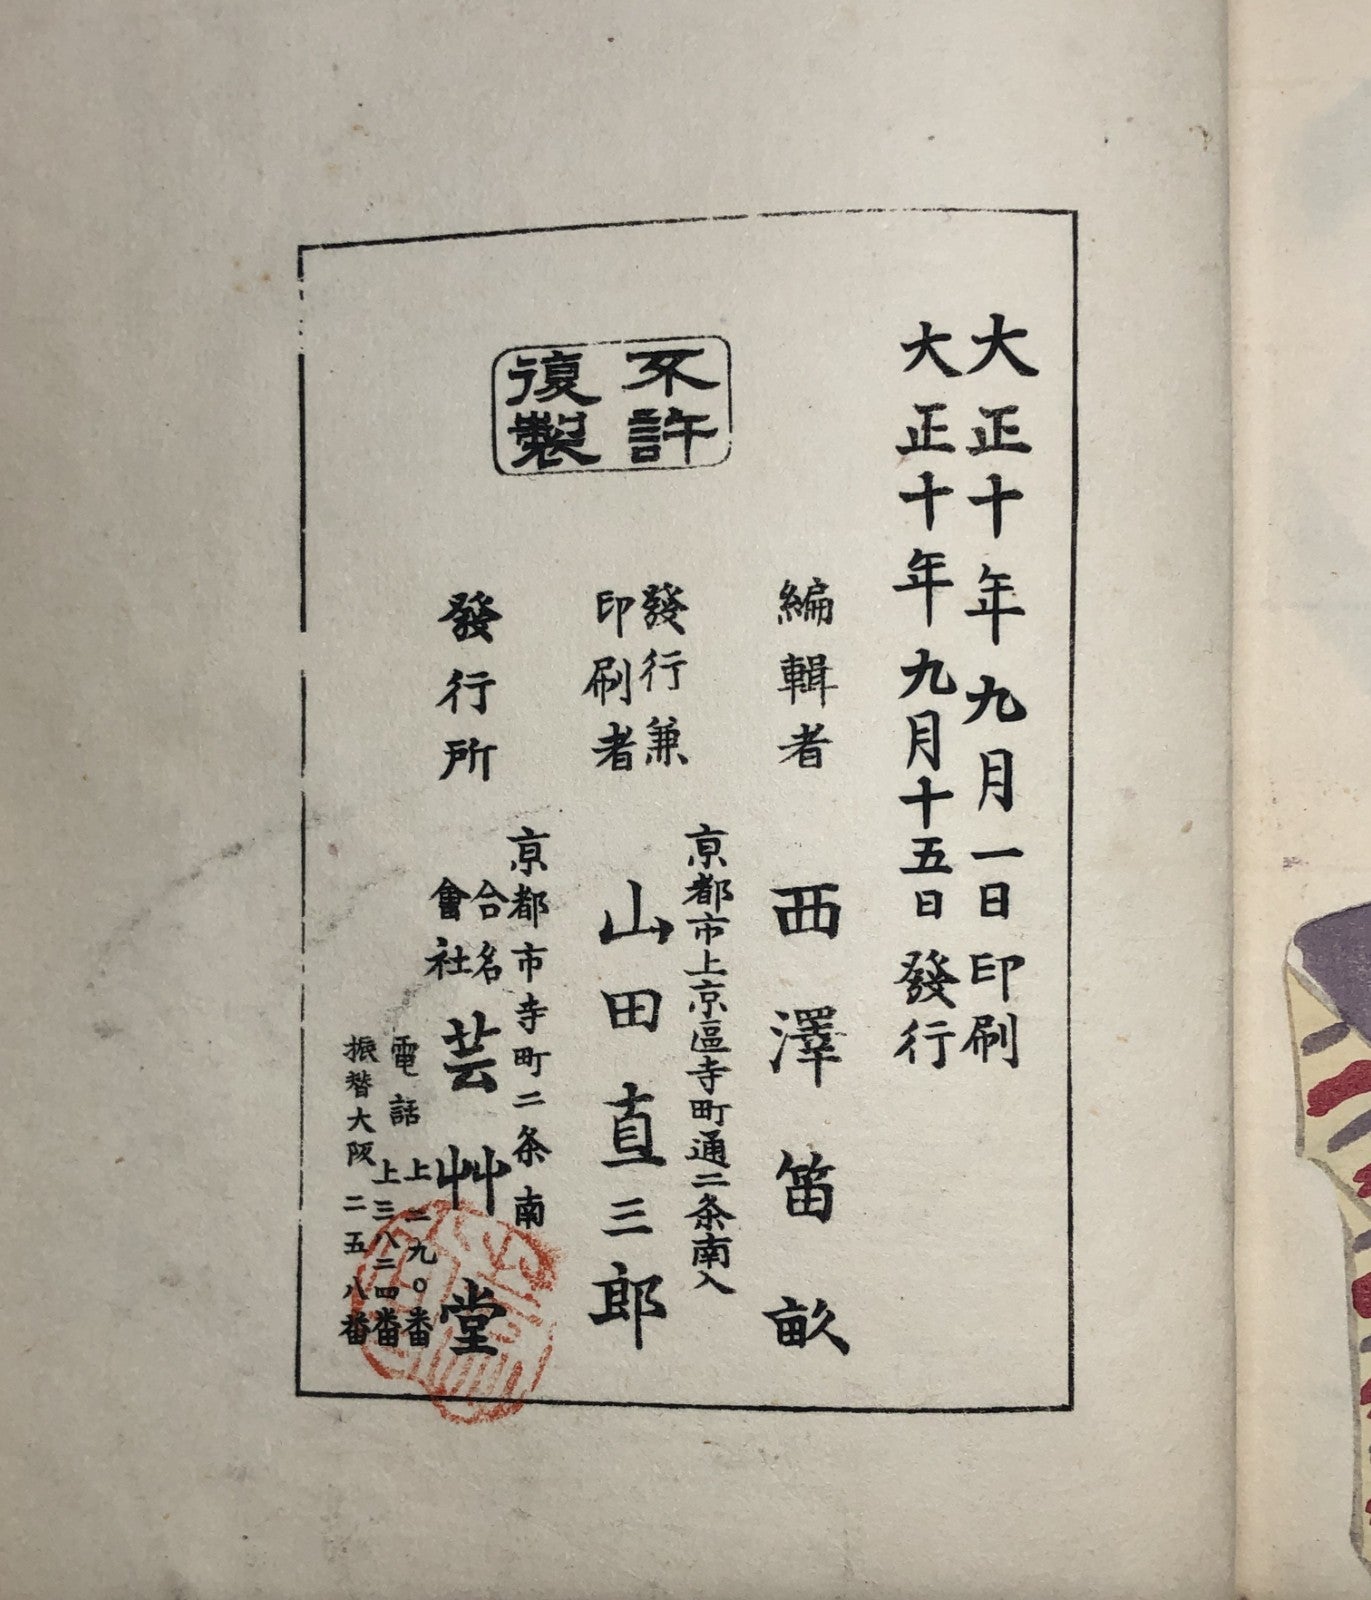 大正十年九月一日印刷
大正十年九月十五日發行
不許
復製
編輯者 西澤笛畝
京都市上京區寺町通二条南入
發行兼
印刷者 山田直三郎
京都市寺町二条南
發行所 合名
會社 芸艸堂
電話 上二九〇番
上三八二四番
振替大阪二五八番